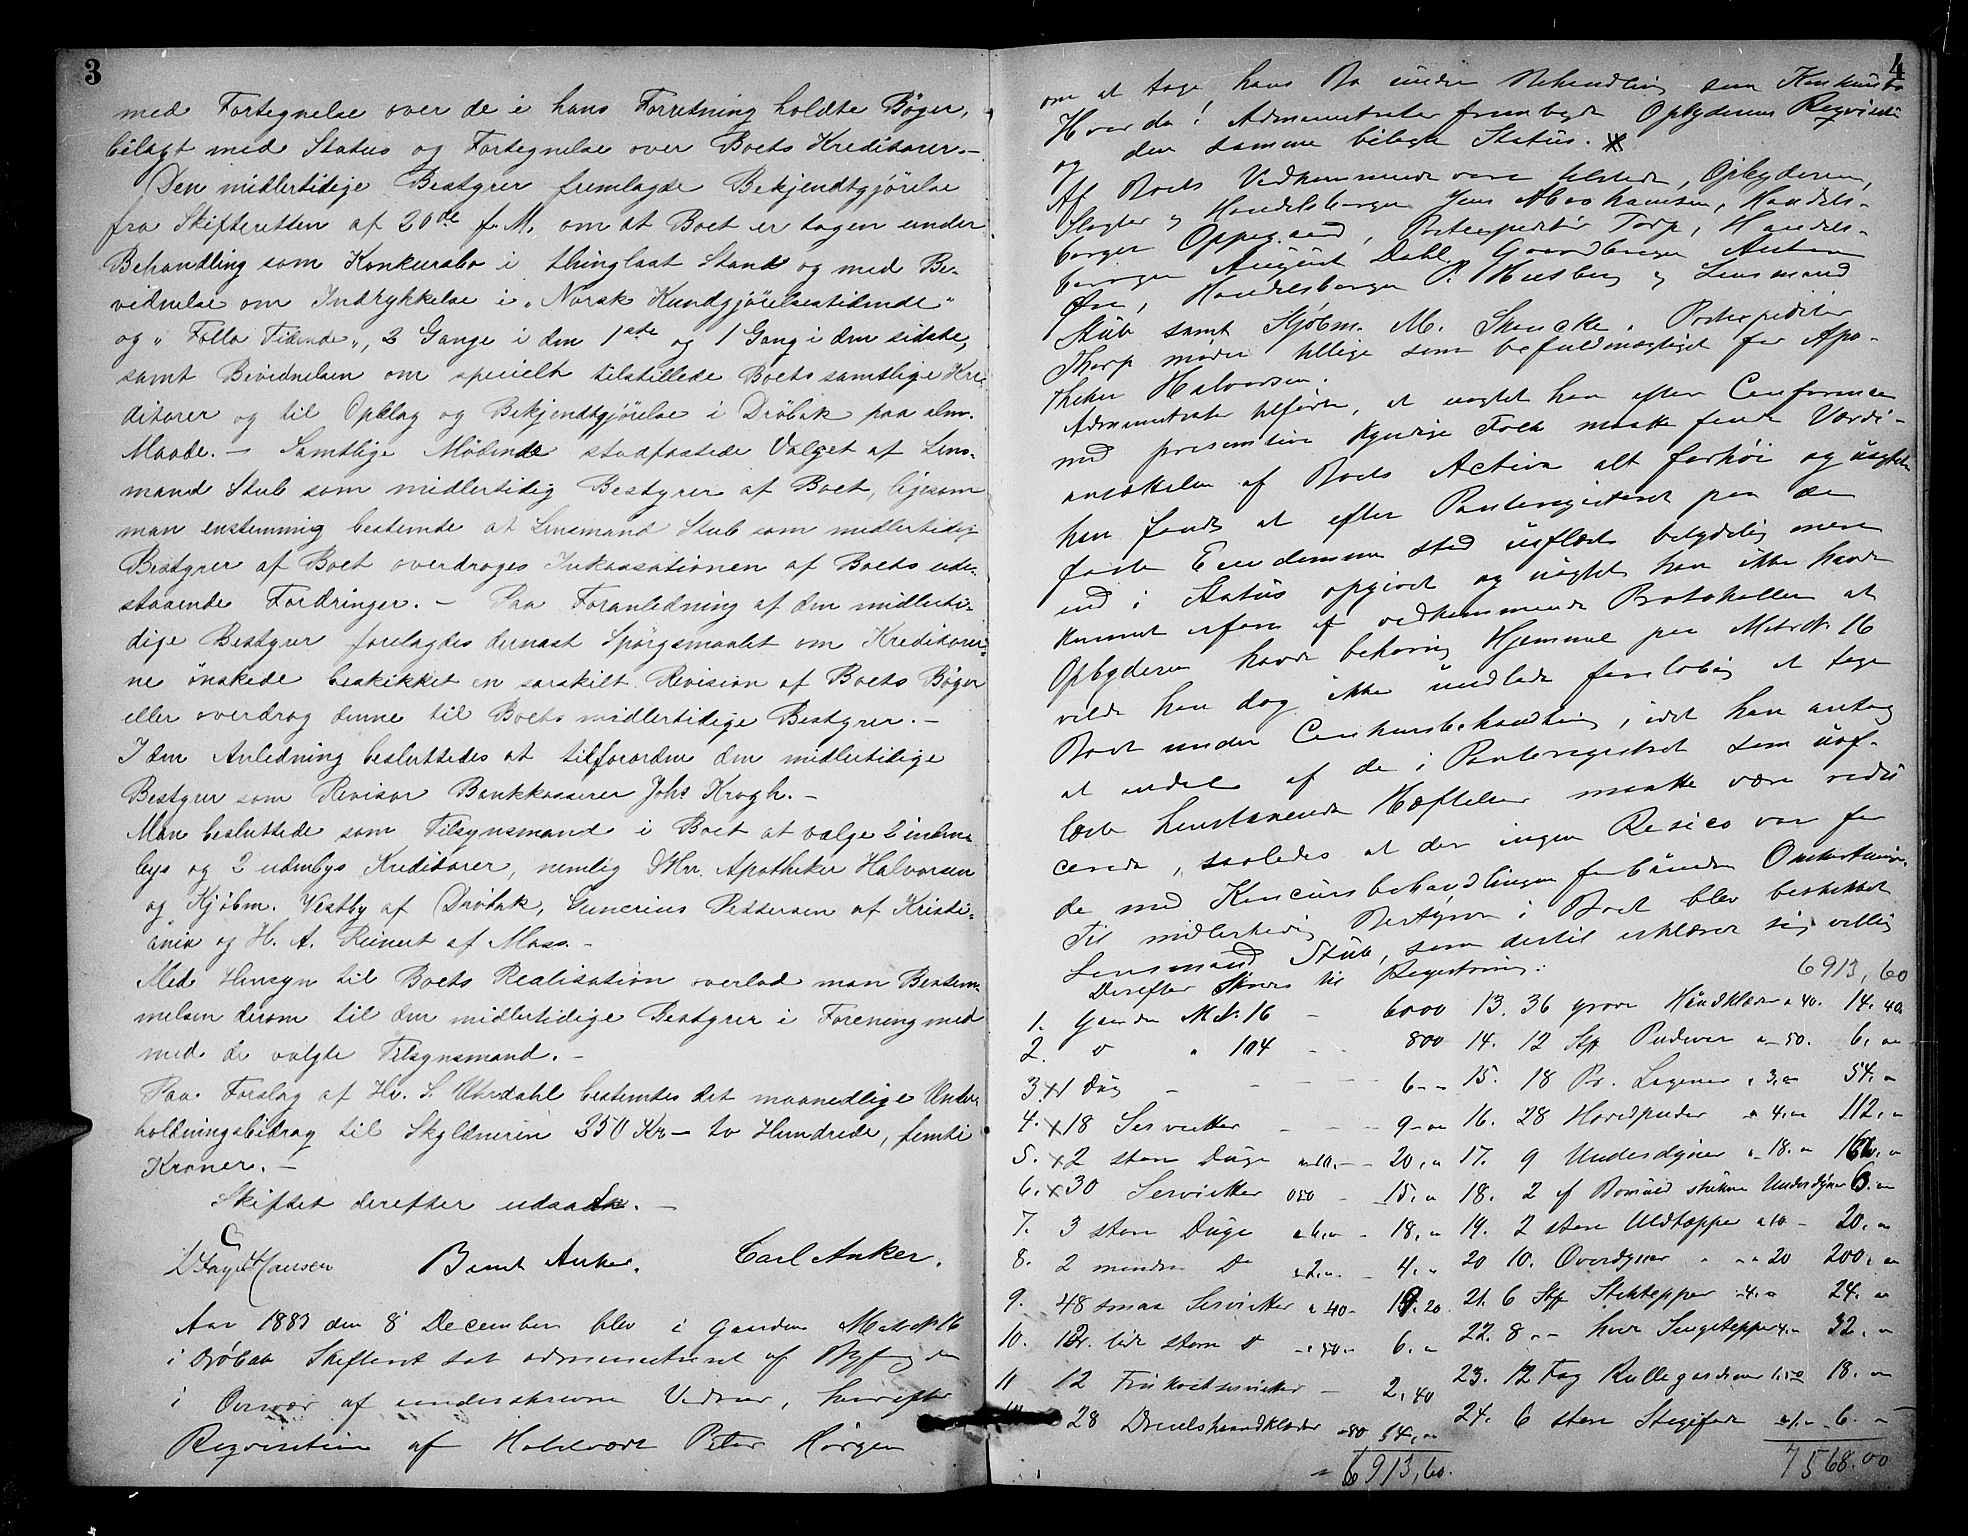 3
med Fortegnelse over de i hans Forretning holdte Bøger,
bilagt med Status og Fortegnelse over Boets Kreditorer. –
Den midlertidige Bestyrer fremlagde Bekjendtgjörelse
fra Skifteretten af 20de f. M. om at Boet er tagen under
Behandling som Konkursbo i thinglæst Stand og med Be-
vidnelse om Indrykkelse i "Norsk Kundgjörelsestidende"
og "Follo Tidende", 2 Gange i den 1ste og 1 Gang i den sidste,
samt Bevidnelsen om specielt tilstillede Boets samtlige Kre-
ditorer og til Opslag og Bekjendtgjörelse i Dröbak paa alm.
Maade. – Samtlige Mödende stadfæstede Valget af Lens-
mand Stub som midlertidig Bestyrer af Boet, ligesom
man enstemmig bestemte at Lensmand Stub som midlertidig
Bestyrer af Boet overdroges Inkassationen af Boets ude-
staaende Fordringer. – Paa Foranledning af den midlerti-
dige Bestyrer forelagdes dernæst Spörgsmaalet om Kreditorer-
ne önskede beskikket en særskilt Revision af Boets Bøger
eller overdrog denne til Boets midlertidige Bestyrer. –
I den Anledning besluttedes at tilforordne den midlertidige
Bestyrer som Revisor Bankkasserer Johs Krogh. –
Man besluttede som Tilsynsmænd i Boet at vælge 2 inden-
bys og 2 udenbys Kreditorer, nemlig Hr. Apotheker Halvorsen
og Kjöbm. Vestby af Dröbak, Gunerius Pettersen af Kristi-
ania og H. A. Reinert af Moss. –
Med Hensyn til Boets Realisation overlod man Bestem-
melsen derom til den midlertidige Bestyrer i Forening med
med de valgte Tilsynsmænd. –
Paa Forslag af Hr. S. bestemtes det maanedlige Under-
holdningsbidrag til Skyldnerin 250 Kr – to Hundrede, femti
Kroner. –
Skiftet derefter udsat. –
Hansen Bernt Anker. Carl Anker.
Aar 1883 den 8 December blev i Gaarden Matr. N 16
i Dröbak Skifteret sat administreret af Byfogden
i Overvær af underskrevne Vidner, hvorefter
Reqvisition af Halvard Peter Hörgen
4
om at tage hans Bo under Behandling som Konkursbo
Hvorda! Administrator frembyde Opbyderens Reqvisition
og den samme bilagte Status. X
Af Boets Vedkommende vare tilstede, Opbyderen,
Slagter og Handelsborger Jens Abrahamsen, Handels-
borger Oppegaard, Postexpeditør Torp, Handels-
borger August Dahl, Gaardbruger Anton
Øre, Handelsborger P. Husberg og Lensmand
Stub samt Kjöbm. M. Skencke. Postexpeditör
Thorp möder tillige som befuldmægtiget for Apo-
theker Halvorsen.
Administrator tilförte, at uagtet han efter Conference
med presumtive kyndige Folk maatte finde Værdi-
ansættelsen af Boets Activa alt forhöi og uagtet
han fandt at efter Panteregisteret paa de
faste Eiendomme stod uaflæst betydelig mere
end i Status opgivet og uagtet han ikke havde
kunnet erfare af vedkommende Protokoller at
Opbyderen havde behörig Hjemmel paa Matr. N 16
vilde han dog ikke undlade foreløbig at tage
Boet under Concursbehandling, idet han antog
at endel af de i Panteregistret som uaf-
læste henstaaende Hæftelser maatte være redu
cerede, saaledes at der ingen Resico var for
de med Concursbehandlingen forbundne Omkostninger.
Til midlertidig Bestyrer i Boet blev beskikket
Lensmand Stub, som dertil erklærer sig villig
Derefter skrees til Registrering:
1. Gaarden M.N. 16 – 6000
2. " " 104 – 800
3. x1 Dug – 6 –
4. x18 Servietter – 9 –
5. x2 store Duge a 10. – 20. "
6. x30 Servietter 0.50 – 15. "
7. 3 store Duge a 6. " – 18. "
8. 2 mindre Do a 2. " – 4. "
9. 48 smaa Servietter a 40 – 19.20
10. 12 lidt större " a 50 – 6. "
11 12 Frokostservietter – 2.40
28 Dreielshaandklæder
6913,60.
6913,60
13. 36 grove Haandklæder a 40. 14.40
14. 12 Stk Pudevar a 50. 6. "
15. 18 Pr. Lagener a 3. " 54. "
16. 28 Hovedpuder a 4. " 112. "
17. 9 Underdyner a 18. " 162. "
18. 2 af Bomuld Underdyner 6. "
19. 2 store Uldtæpper a 10 – 20. "
20 10. Overdyner " a 20 200. "
21. 6 Stk Stiktepper 4. " 24. "
22. 8 " hvide Sengetepper 4. " 32. "
23. 12 Fag Rullegardiner 1.50 18. "
24. 6 store a 1. " 6. "
7568.00